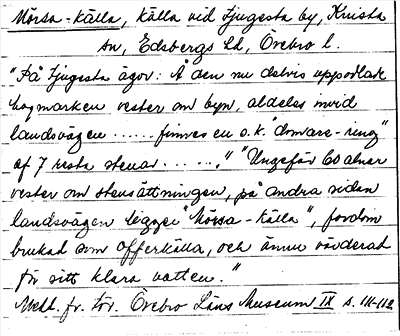 Mörsa-källa, källa vid Ljugesta by, Knista
sn, Edsbergs hd, Örebro l.
"På Ljugesta ägor: Å den nu delvis uppodlade
hagmarken vester om byn, aldeles invid
landsvägen ...... finnes en s.k. "domare-ring"
af 7 resta stenar ......" "Ungefär 60 alnar
vester om stensättningen, på andra sidan
landsvägen ligger "Mörsa-källa", fordom
brukad som offerkälla, och ännu värderad
för sitt klara vatten."
Medd. fr. för. Örebro Läns Museum IX s. 111-112